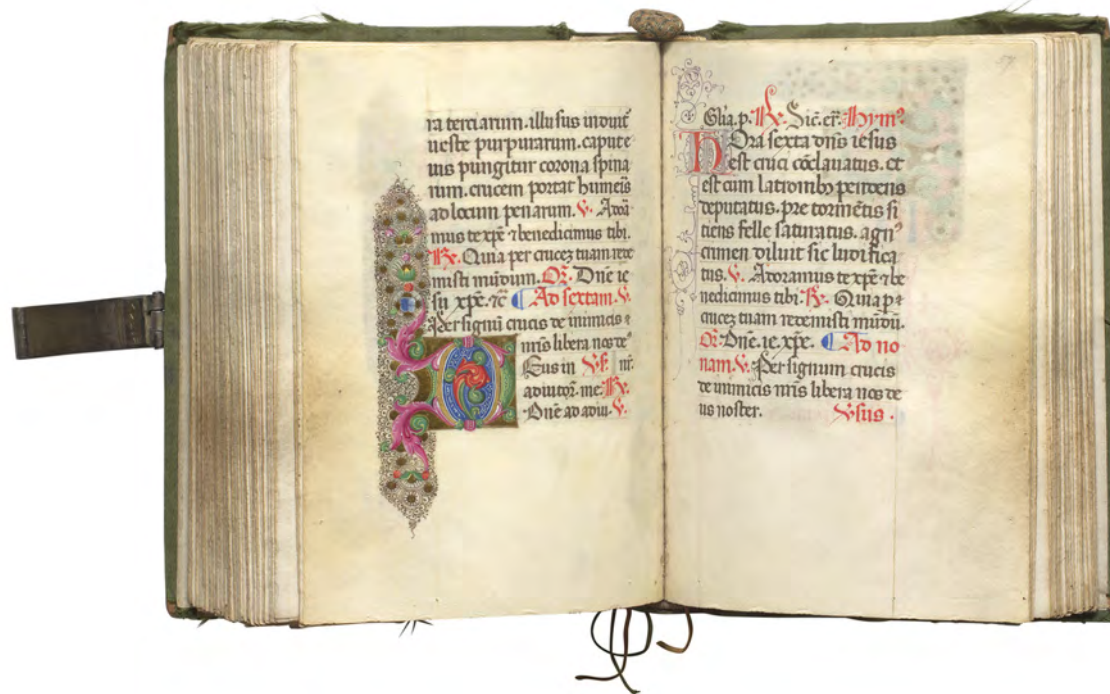 ra terciarum. illusus induit᷑
ueste purpurarum. capute
ius pungitur corona spina
rum. crucem portat humeis
ad locum penarum. V. Adoā
mus te xp̄e ⁊ benedicimus tibi.
R. Quia per crucez tuam rede
misti mūdum. Or̄. Dn̄e ie
su xp̄e. ⁊c̄ Ad sextam. V.
Per signū crucis de inimicis
nr̄is libera nos de
Deus in
adiutor̄. me. R.
Dn̄e ad adiu. V.
57
Gl̄ia. p. R. Sic̄. er̄. Hymꝰ
Hora sexta dn̄s iesus
est cruci cōclauatus. et
est cum latronibꝰ pendens
deputatus. pre tormētis si
tiens felle saturatus. agnꝰ
crimen diluit sic ludifica
tus. V. Adoramus te xp̄e ⁊ be
nedicimus tibi. R. Quia p
crucez tuam redemisti mūdū.
Or̄. Dn̄e. ie. xp̄e. Ad no
nam. V. Per signum crucis
de inimicis nr̄is libera nos de
us noster. Vsus.